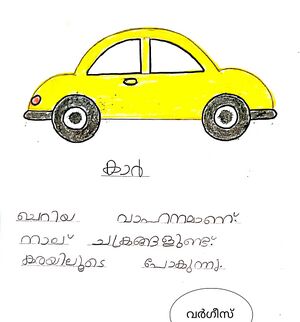 കാർ
ചെറിയ വാഹനമാണ്.
നാല് ചക്രങ്ങളുണ്ട്.
കരയിലൂടെ പോകുന്നു.
വർഗീസ്